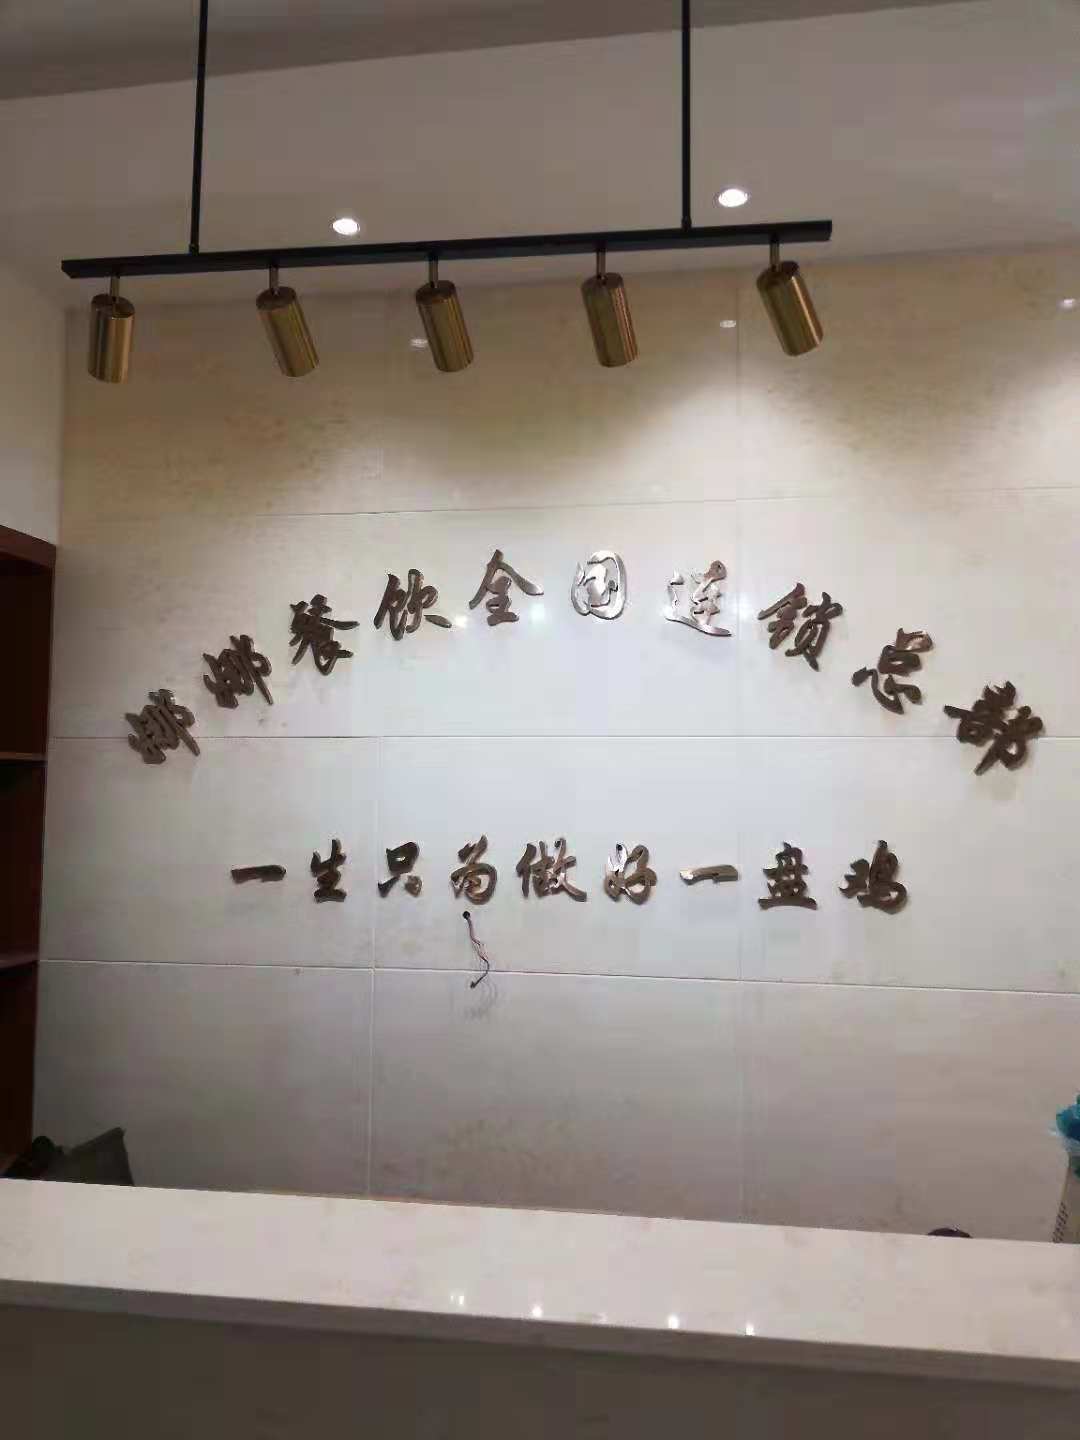 餐饮全国连锁总部
一生只为做好一盘鸡